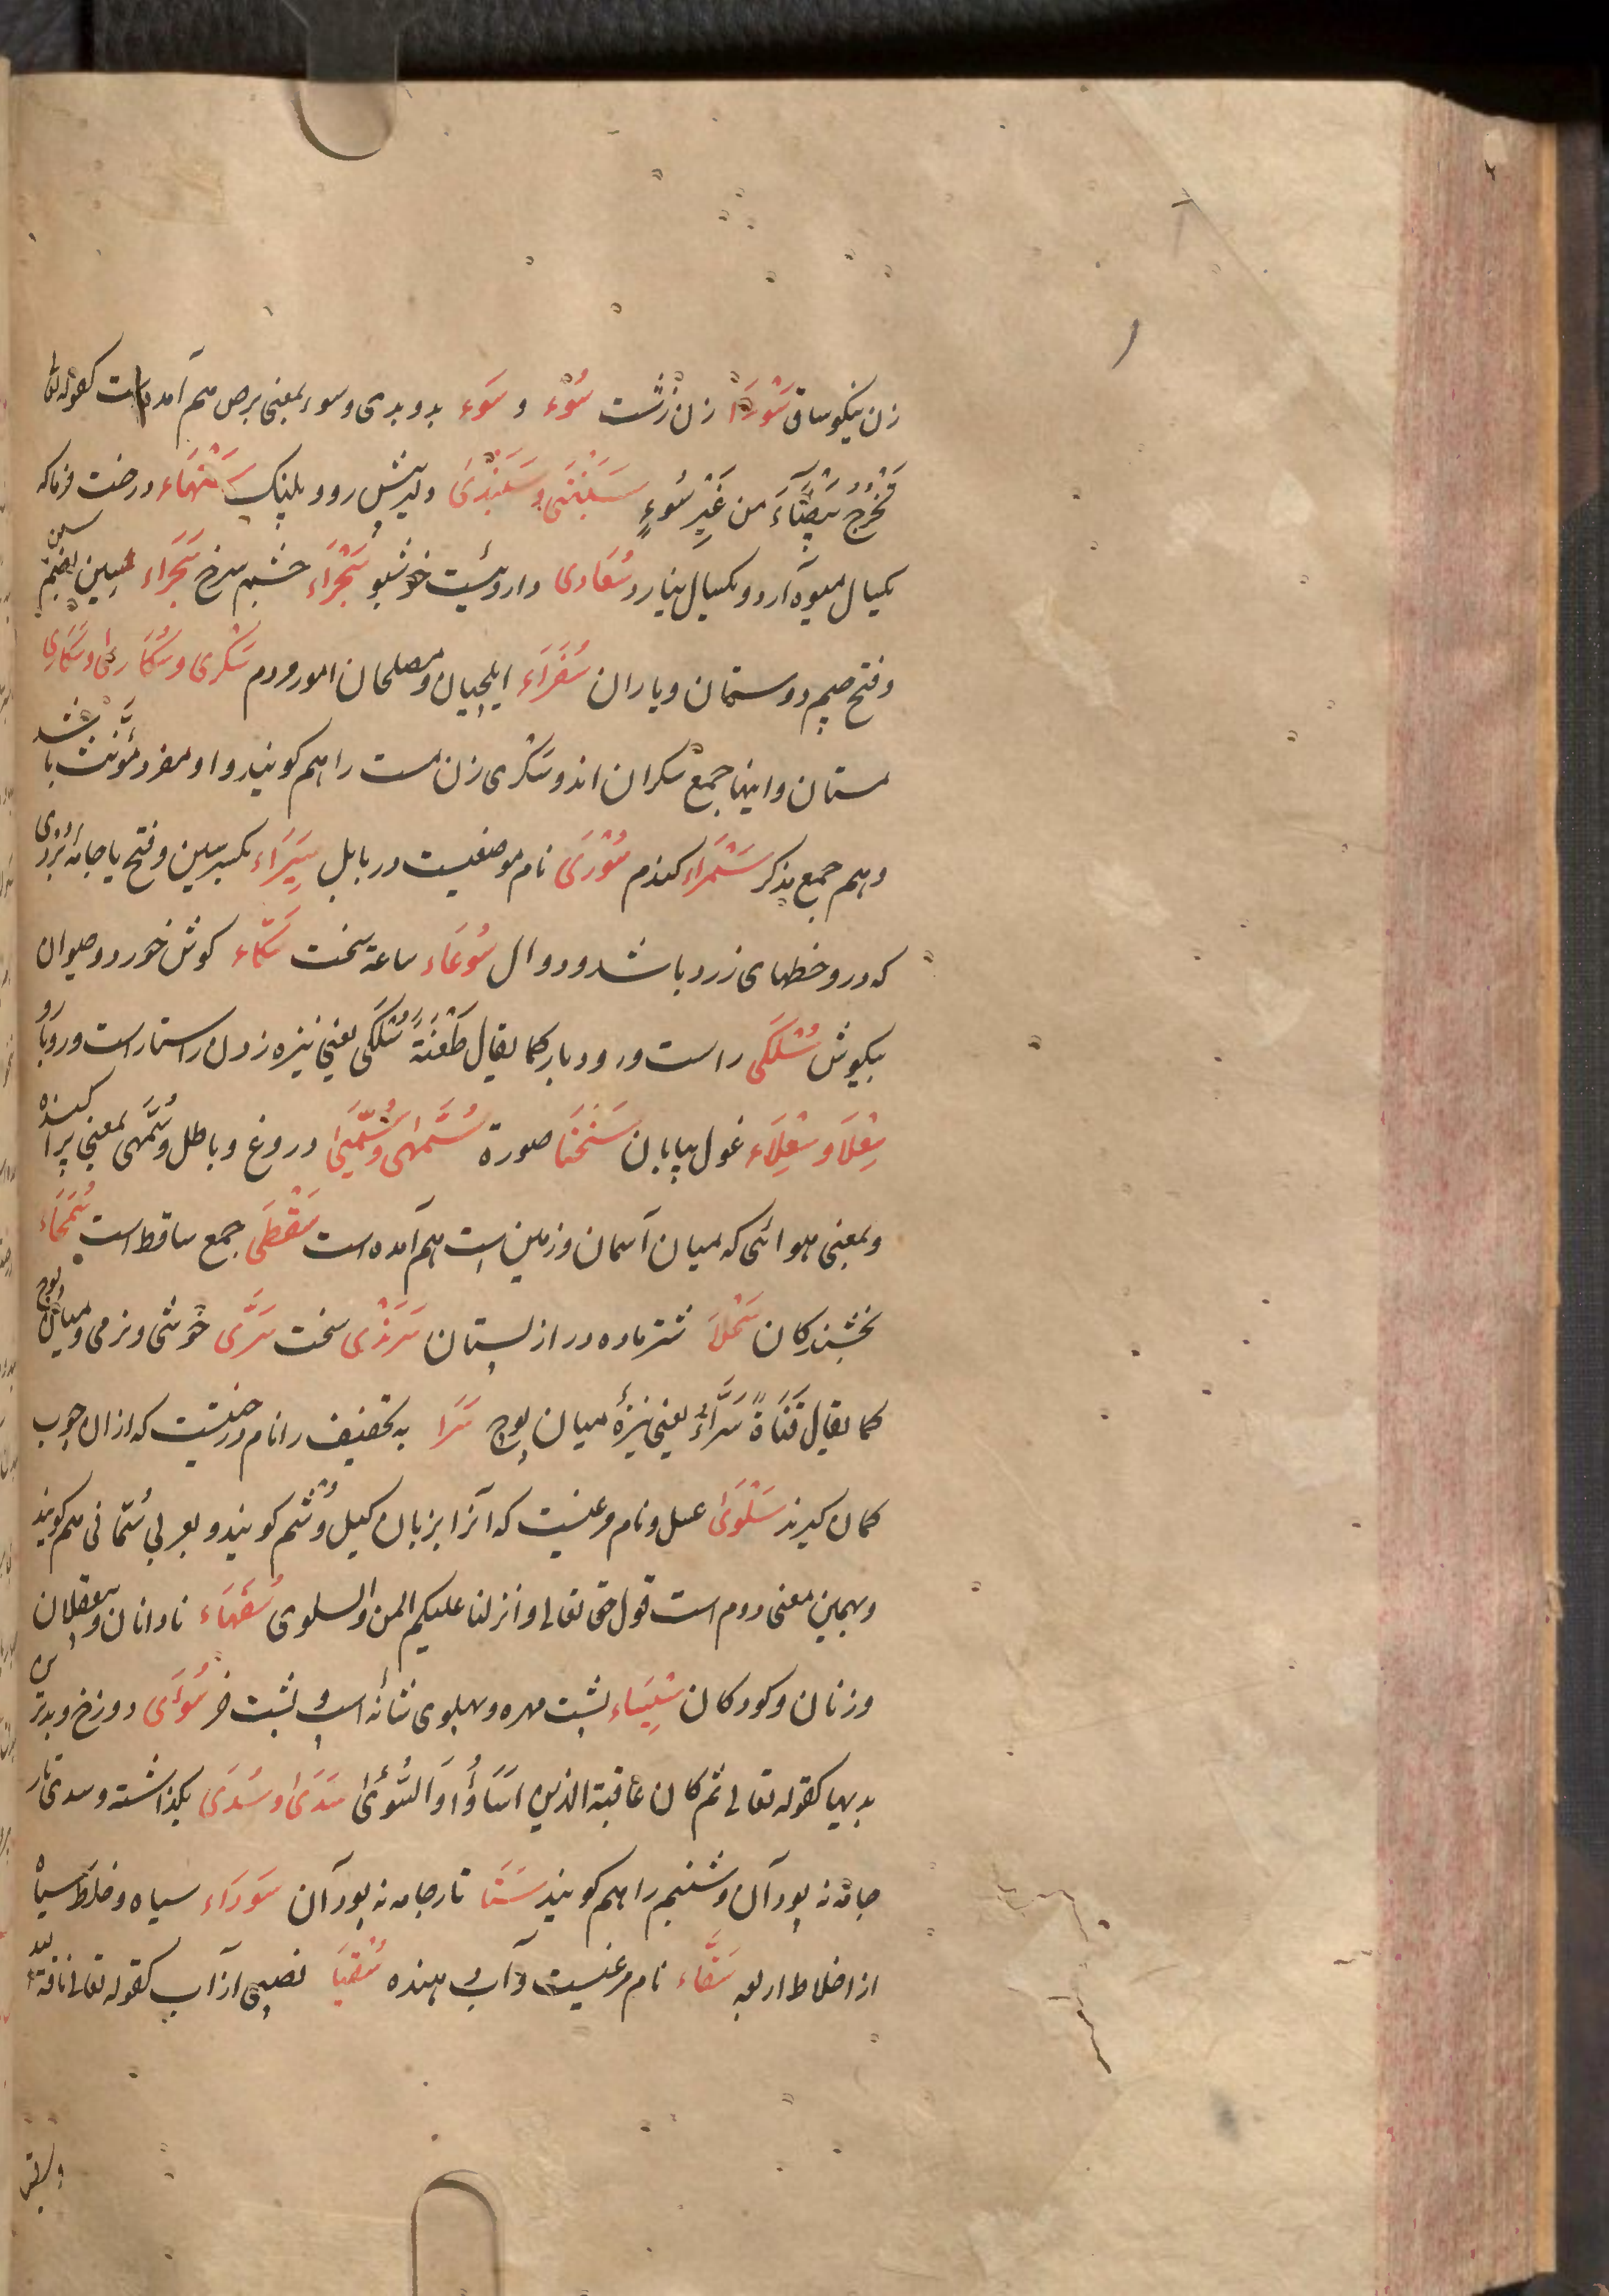 زن نیکو ساق سَوْءَا زن زشت سُوْء و سَوء بد و بدی و سوء بمعنی برص هم آمده است کقوله تعالی
تَخْرُجْ بَیْضَآءَ من غَیْرِ سُوءٍ سَبَنْتَی و سَبَنْدَی دلیر پیش رو و پلنک سَنْهَاء درخت خرما که
یکسال میوه آرد و یکسال نیارد سُعَادی داروئیست خوشبو سَجْرَاء چشم سرخ سُجَرَاء بضم سین
و فتح جیم دوستان و یاران سُفَرَاء ایلچیان و مصلحان امور مردم سَکْری و سُکَاری و سَکَاری
مستان و اینها جمع سکران اند و سَکْری زن مست را هم کویند و او مفرد مؤنث باشد
و هم جمع مذکر سَمْرَاء کندم سُوْرَی نام موضعیست در بابل سِیَرَاء بکسر سین و فتح یا جامۀ بردی
که درو خطهای زرد باشد و دوال سُوعَاء ساعة سخت سَکَّاء کوش خورد و حیوان
بیکوش سُلْکَی راست و روبار کما یقال طَعْنَةً سُلْکَی یعنی نیزه زدن راستا راست و روبارو
سِعْلَا و سِعْلَاء غول بیابان سَحْنَا صورة سُمَّهٰی و سُمَّیْهٰی دروغ و باطل و سُمَّهی بمعنی پراکنده
و بمعنی هوائی که میان آسمان و زمین است هم آمده است سَقْطَی جمع ساقط است سُمَحَاء
بخشندکان سَحْلَا شتر ماده دراز پستان سَرَنْدی سخت سَرَّی خوشی و نرمی و میان پوچ
کما یقال قَنَاةً سَرَّاءُ یعنی نیزۀ میان پوچ سَرَا به تخفیف را نام درختیست که ازان چوب
کمان کیرند سَلْوَیٰ عسل و نام مرغیست که آنرا بزبان کیل وُشُم کویند و بعربی سُمَانی هم کویند
و بهمین معنی دوم است قول حق تعالی و انزلنا علیکم المن و السلوی سُفَهَاء نادانان و بیعقلان
و زنان و کودکان سِیْسَاء پشت مهره و پهلوی شانۀ اسپ و پشت خر سُوْءَی دوزخ و بدترین
بدیها کقوله تعالی ثم کان عَاقبة الذین اسَاؤُا السُّوْءَیٰ سَدَی و سُدَی بکذاشته و سدی تار
جامه نه پود آن و شبنم را هم کویند سَتَا تار جامه نه پود آن سَوْدَاء سیاه و خلط سیاه
از اخلاط اربعه سَقَّاء نام مرغیست و آب دهنده سُقْیَا نصیبی از آب کقوله تعالی ناقة الله
و سقیها